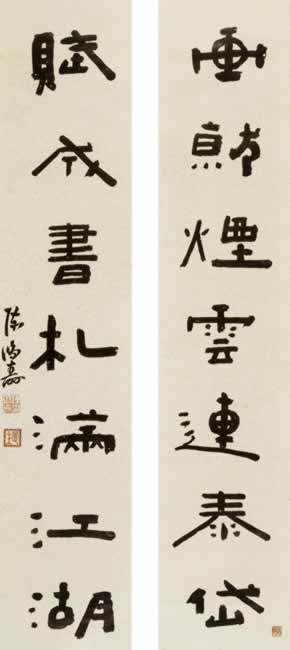 畫就煙雲連泰岱
賦成書札滿江湖
陳鴻壽